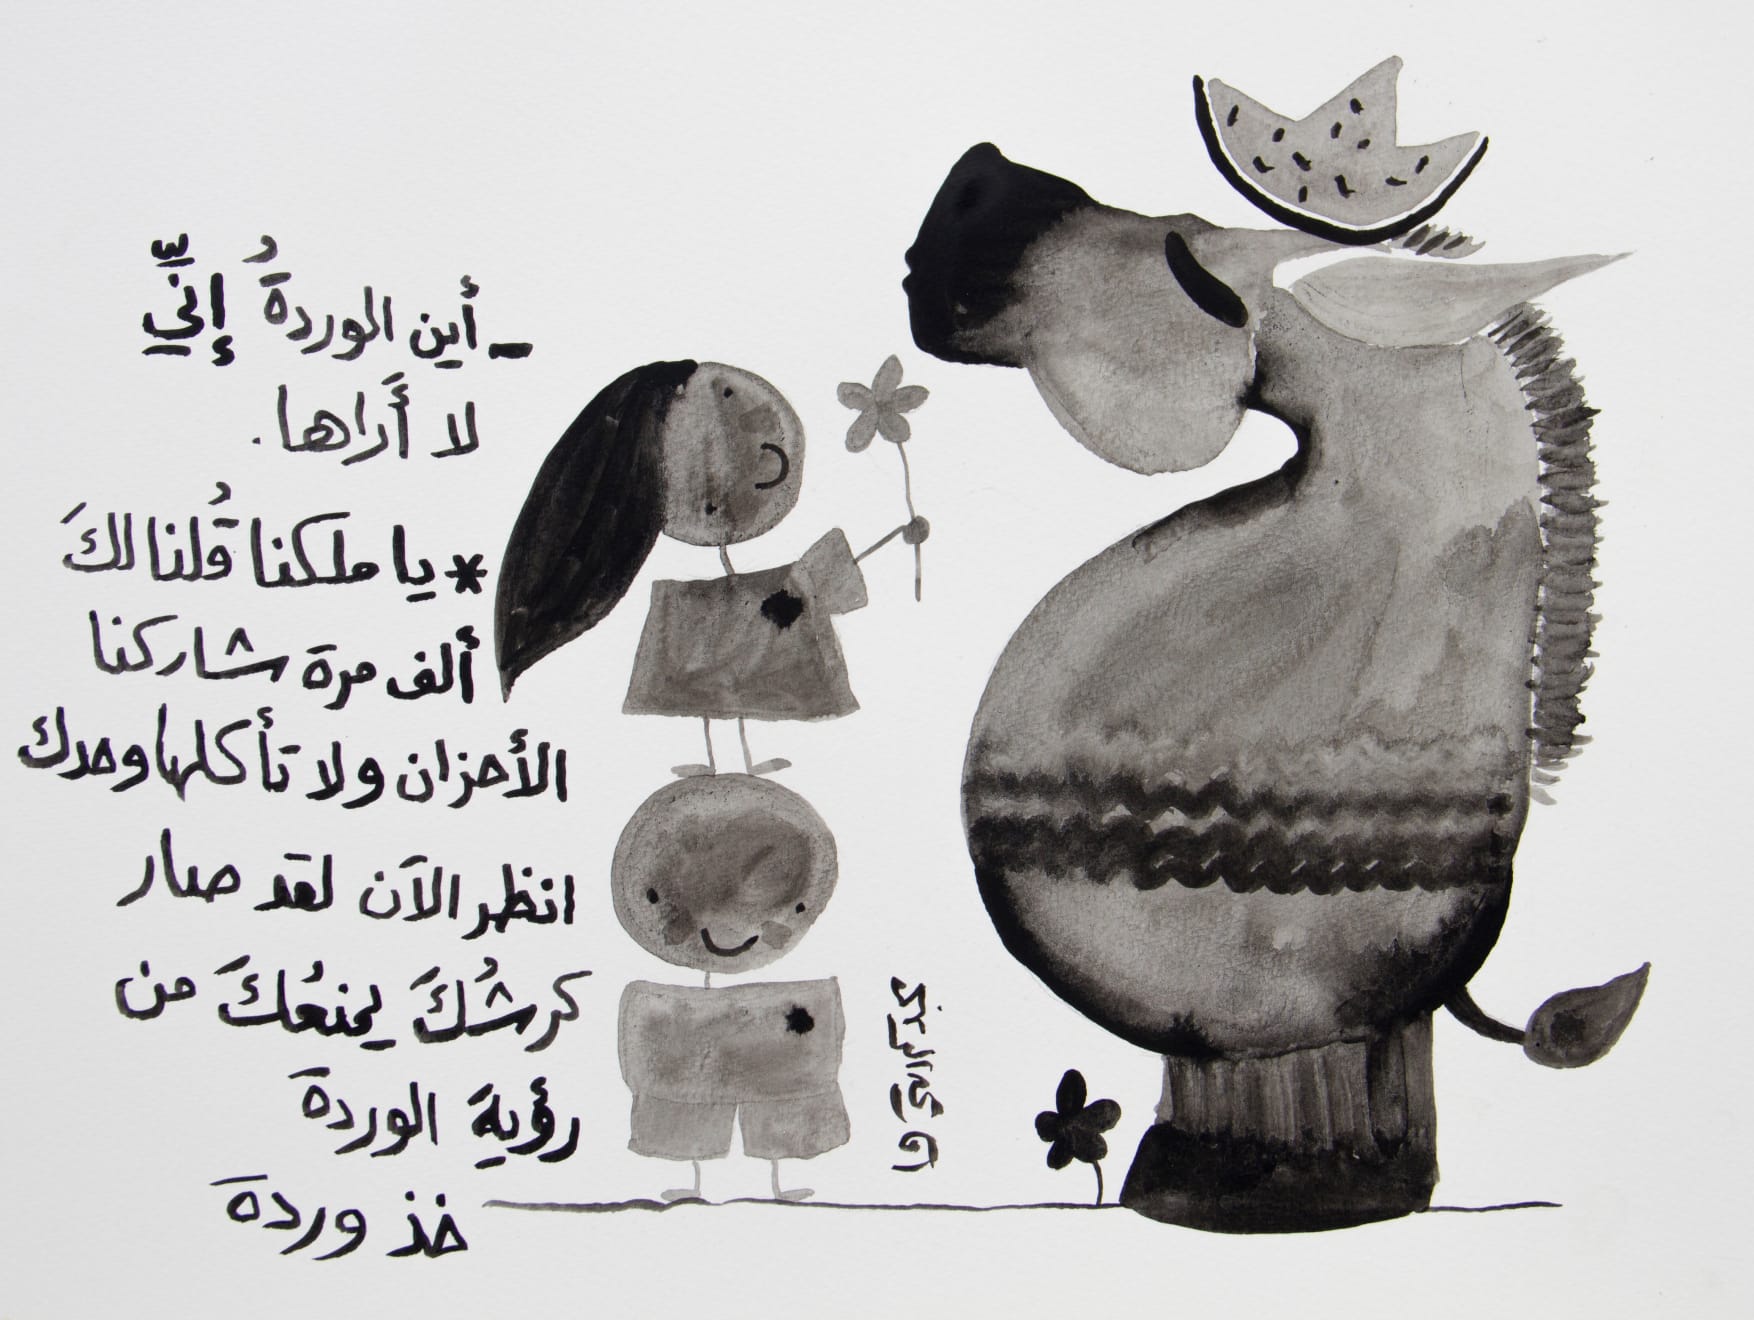 - أين الوردةُ إنِّي
لا أَراها.
* يا ملكنا قُلنا لكَ
ألف مرة شاركنا
الأحزان ولا تأكلها وحدك
انظر الآن لقد صار
كرشُكَ يمنعُكَ من
رؤية الوردة
خذ وردة